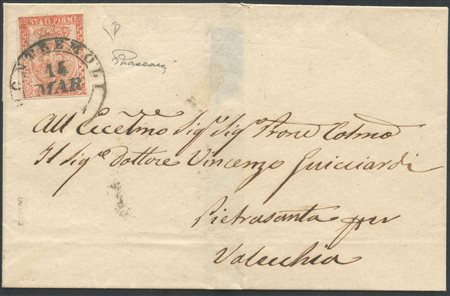 STATI PARM.
PONTREMOLI
15
MAR
All'Eccelmo Sigr Sigr Prone Colmo
Il Sigre Dottore Vincenzo Guicciardi
Pietrasanta per
Valecchia